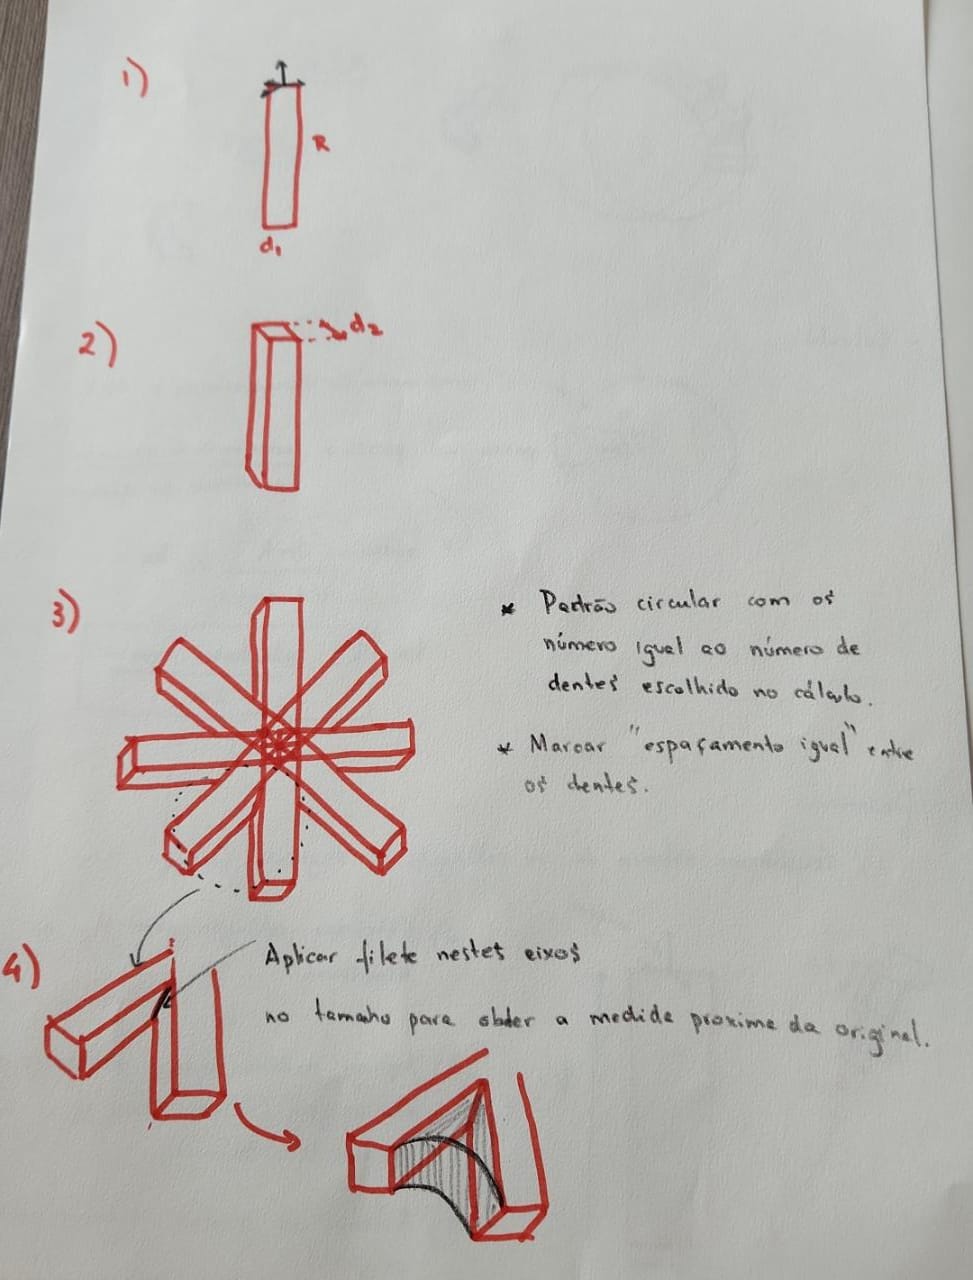 1)
R
d₁
2)
d₂
3)
* Padrão circular com os
número igual ao número de
dentes escolhido no cálculo.
* Marcar "espaçamento igual" entre
os dentes.
4)
Aplicar filete nestes eixos
no tamanho para obter a medida proxima da original.